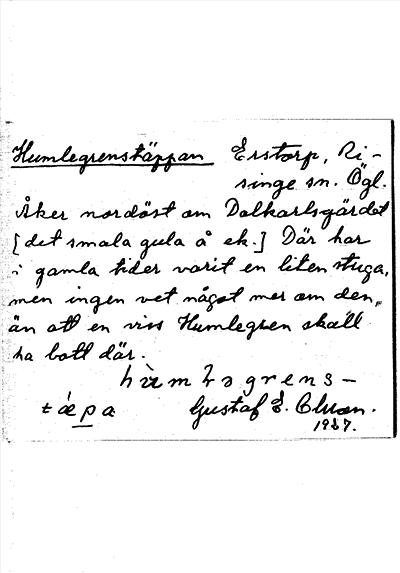 Humlegrenstäppan Erstorp, Ri-
singe sn. Ögl.
Åker nordöst om Dalkarlsgärdet
[det smala gula å ek.] Där har
i gamla tider varit en liten stuga,
men ingen vet något mer om den,
än att en viss Humlegren skall
ha bott där.
grens-
Gustaf E.